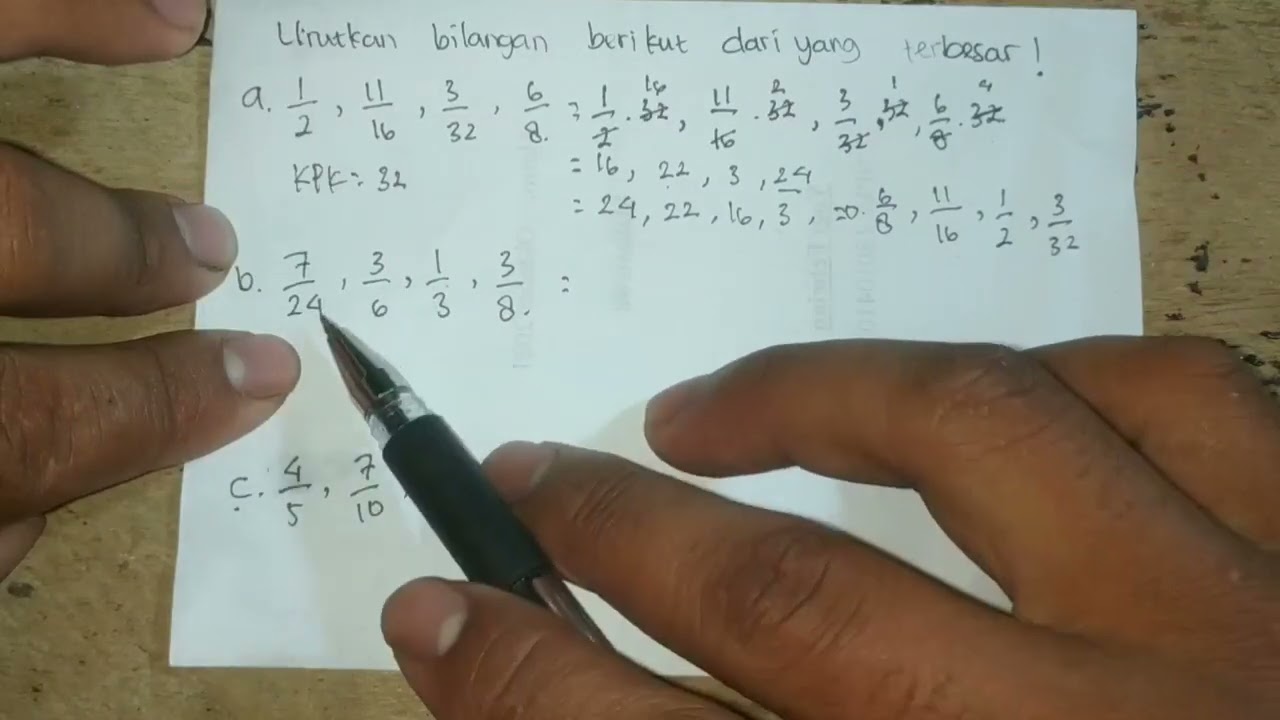 Urutkan bilangan berikut dari yang terbesar!
a. 1/2, 11/16, 3/32, 6/8. = 1/2 . 32 16, 11/16 . 32 2, 3/32 . 32 1, 6/8 . 32 4
KPK = 32
= 16, 22, 3, 24
= 24, 22, 16, 3, => 6/8, 11/16, 1/2, 3/32
b. 7/24, 3/6, 1/3, 3/8. =
c. 4/5, 7/10